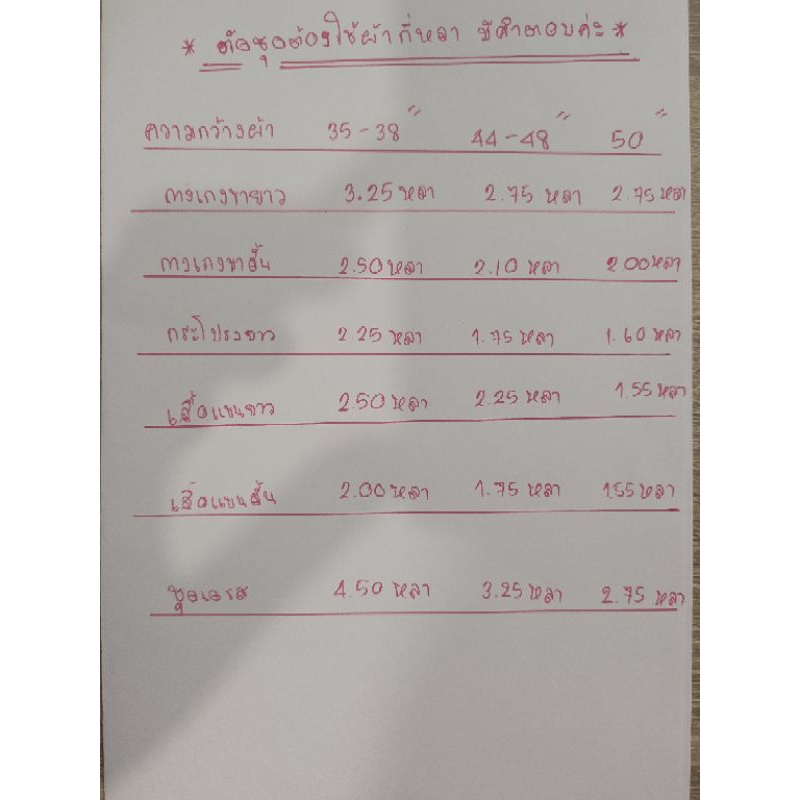 * ตัดชุดต้องใช้ผ้ากี่หลา มีคำตอบค่ะ *
ความกว้างผ้า 35-38" 44-48" 50"
กางเกงขายาว 3.25 หลา 2.75 หลา 2.75 หลา
กางเกงขาสั้น 2.50 หลา 2.10 หลา 2.00 หลา
กระโปรงยาว 2.25 หลา 1.75 หลา 1.60 หลา
เสื้อแขนยาว 2.50 หลา 2.25 หลา 1.55 หลา
เสื้อแขนสั้น 2.00 หลา 1.75 หลา 1.55 หลา
ชุดเดรส 4.50 หลา 3.25 หลา 2.75 หลา